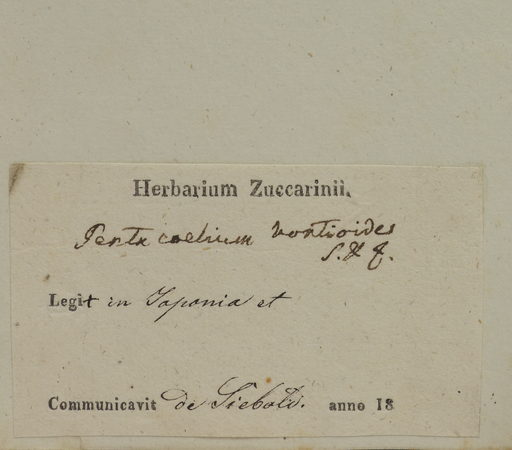 Herbarium Zuccarinii.
Pentacoelium bontioides
S. & Z.
Legit in Japonia et
Communicavit de Siebold. anno 18